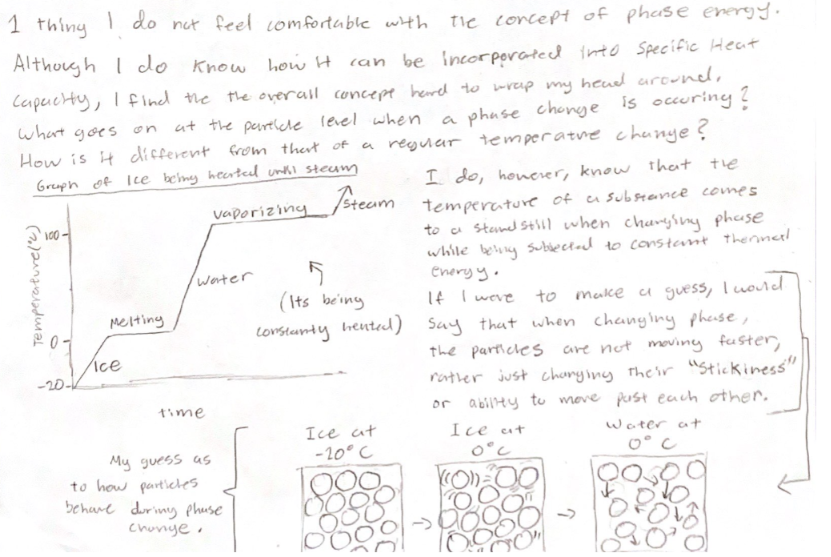 1 thing I do not feel comfortable with the concept of phase energy.
Although I do know how it can be incorporated into Specific Heat
Capacity, I find the the overall concept hard to wrap my head around.
What goes on at the particle level when a phase change is occuring?
How is it different from that of a regular temperature change?
Graph of Ice being heated until steam
Temperature(°C)
100
0
-20
Ice
Melting
water
vaporizing
steam
(Its being
constantly heated)
time
I do, however, know that the
temperature of a substance comes
to a standstill when changing phase
while being subjected to constant thermal
energy.
If I were to make a guess, I would
say that when changing phase,
the particles are not moving faster,
rather just changing their "Stickiness"
or ability to move past each other.
My guess as
to how particles
behave during phase
change.
Ice at
-20°C
Ice at
0°C
Water at
0°C